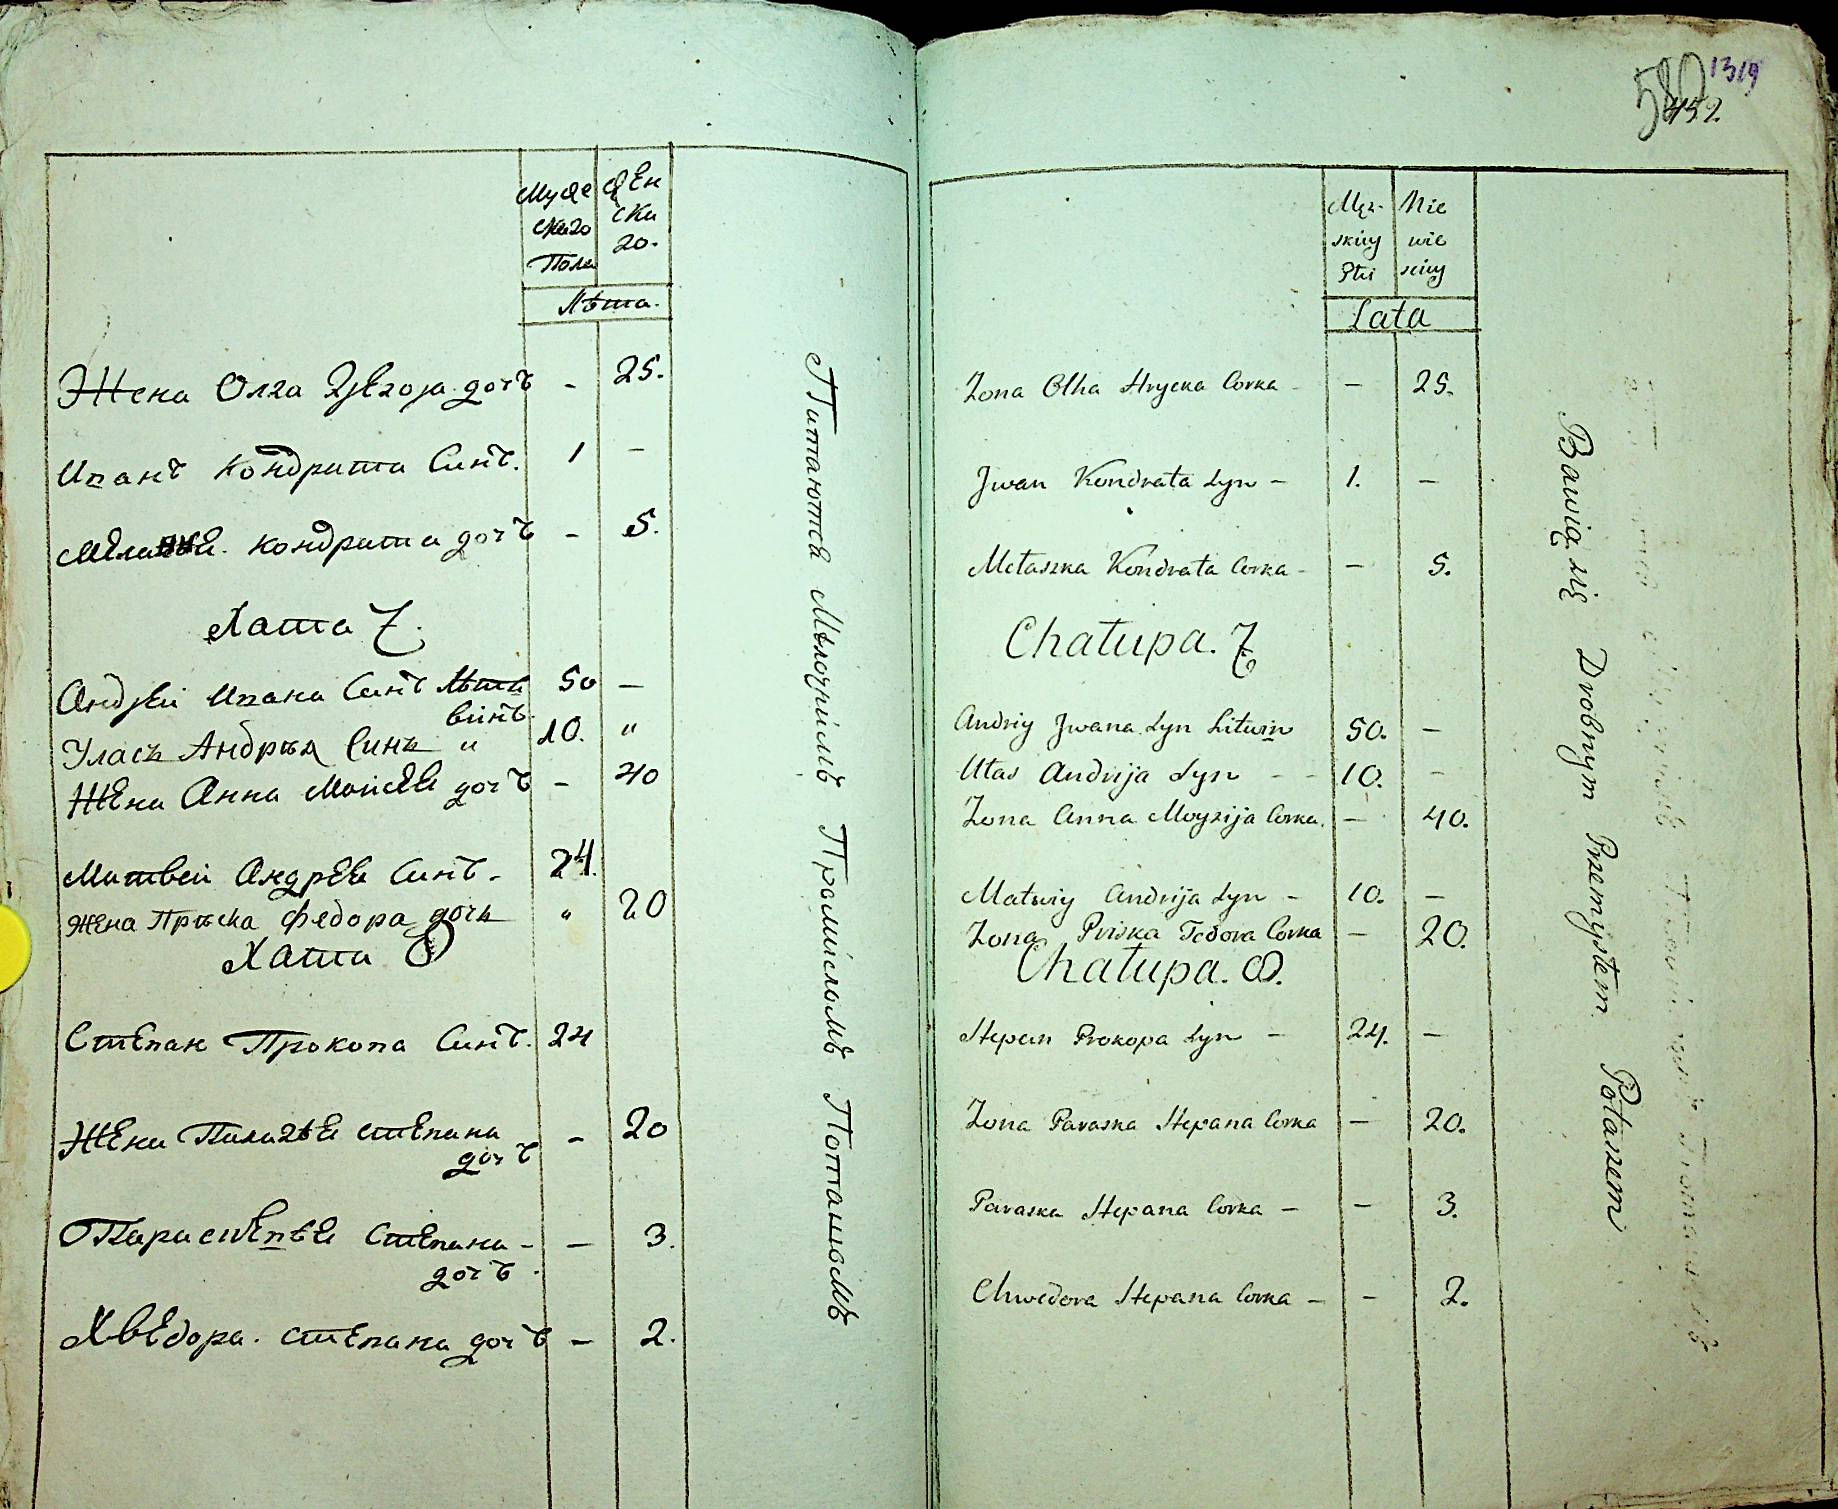 Мужескаго Пола
Женскаго
Лѣта.
Жена Олга дочъ - 25.
Иванъ Кондрата Синъ. 1 -
Кондрата дочъ - 5.
Хата 7.
Андрей Ивана Синъ Лѣтвинъ 50 -
Уласъ Андрѣя Синъ " 10. "
Жена Анна Моисѣя дочъ - 40
Матвей Андрея Синъ - 24.
жена Прѣска Федора дочь " 20
Хата 8
Степан Прокопа Синъ. 24
Жена Степана дочъ - 20
Степана дочъ - - 3.
Хведора Степана дочъ - 2.
Питаются Промисломъ Поташомъ
1319
580
452
Męzkiey Płci
Niewieściey
Lata
Zona Olha Hrycka Corka - - 25.
Jwan Kondrata Syn - 1. -
Mełaszka Kondrata Corka - - 5.
Chałupa. 7
Andriy Jwana Syn Litwin 50. -
Ułas Andrija Syn - - 10. -
Zona Anna Moyzija Corka. - 40.
Matwiy Andrija Syn - 10. -
Zona Priska Fedora Corka - 20.
Chałupa. 8.
Stepan Prokopa Syn - 24. -
Zona Paraska Stepana Corka - 20.
Paraska Stepana Corka - - 3.
Chwedora Stepana Corka - - 2.
Bawią się Drobnym Przemysłem Potaszem